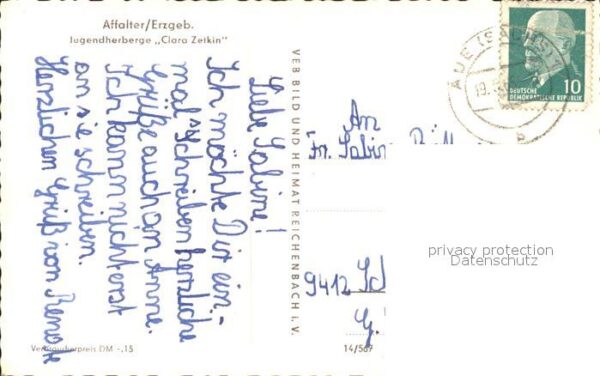 Affalter/Erzgeb.
Jugendherberge „Clara Zetkin"
Liebe Sabine!
Ich möchte Dir ein-
mal schreiben herzliche
Grüße auch an Anne.
Ich kann nicht erst
an sie schreiben.
Herzlichen Gruß von Renate
Verbraucherpreis DM -,15
VEB BILD UND HEIMAT REICHENBACH i. V.
14/567
AUE (SACHS)
19.
10
DEUTSCHE
DEMOKRATISCHE REPUBLIK
An
Fr. Sabin
9412 Sch
privacy protection
Datenschutz